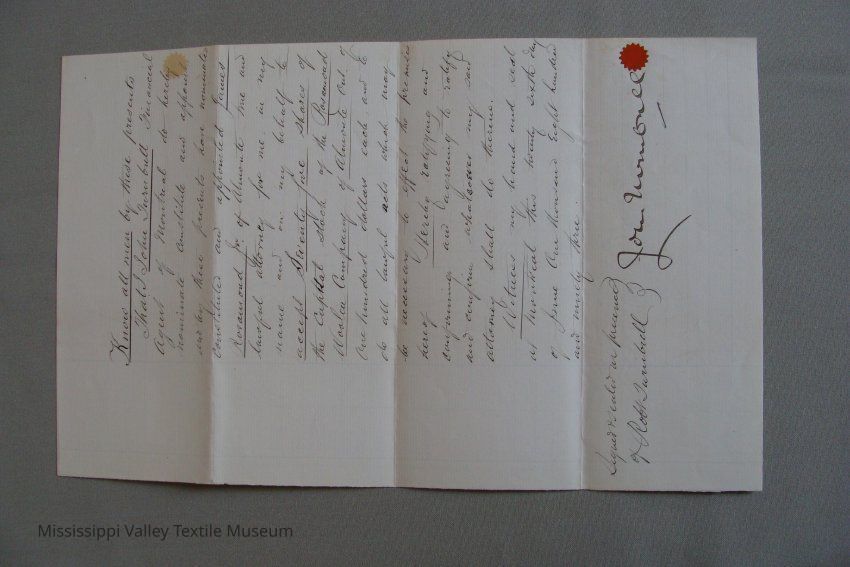 Know all men by these presents
That I John Turnbull Financial
Agent of Montreal do hereby
nominate constitute and appoint
and by these presents have nominated
constituted and appointed James
Rosamond Jr. of Almonte me and
lawful attorney for me in my
name and on my behalf to
accept Twenty five shares of
the Capital Stock of the Rosamond
Woolen Company of Almonte Ont. of
One hundred dollars each, and to
do all lawful acts which may
be necessary to effect the premises
hereof Hereby ratifying and
confirming and agreeing to ratify
and confirm whatsoever my said
attorney shall do herein.
Witness my hand and seal
at Montreal this twenty sixth day
of June One thousand Eight hundred
and ninety three.
Signed & sealed in presence
of Robt Turnbull
John Turnbull
Mississippi Valley Textile Museum